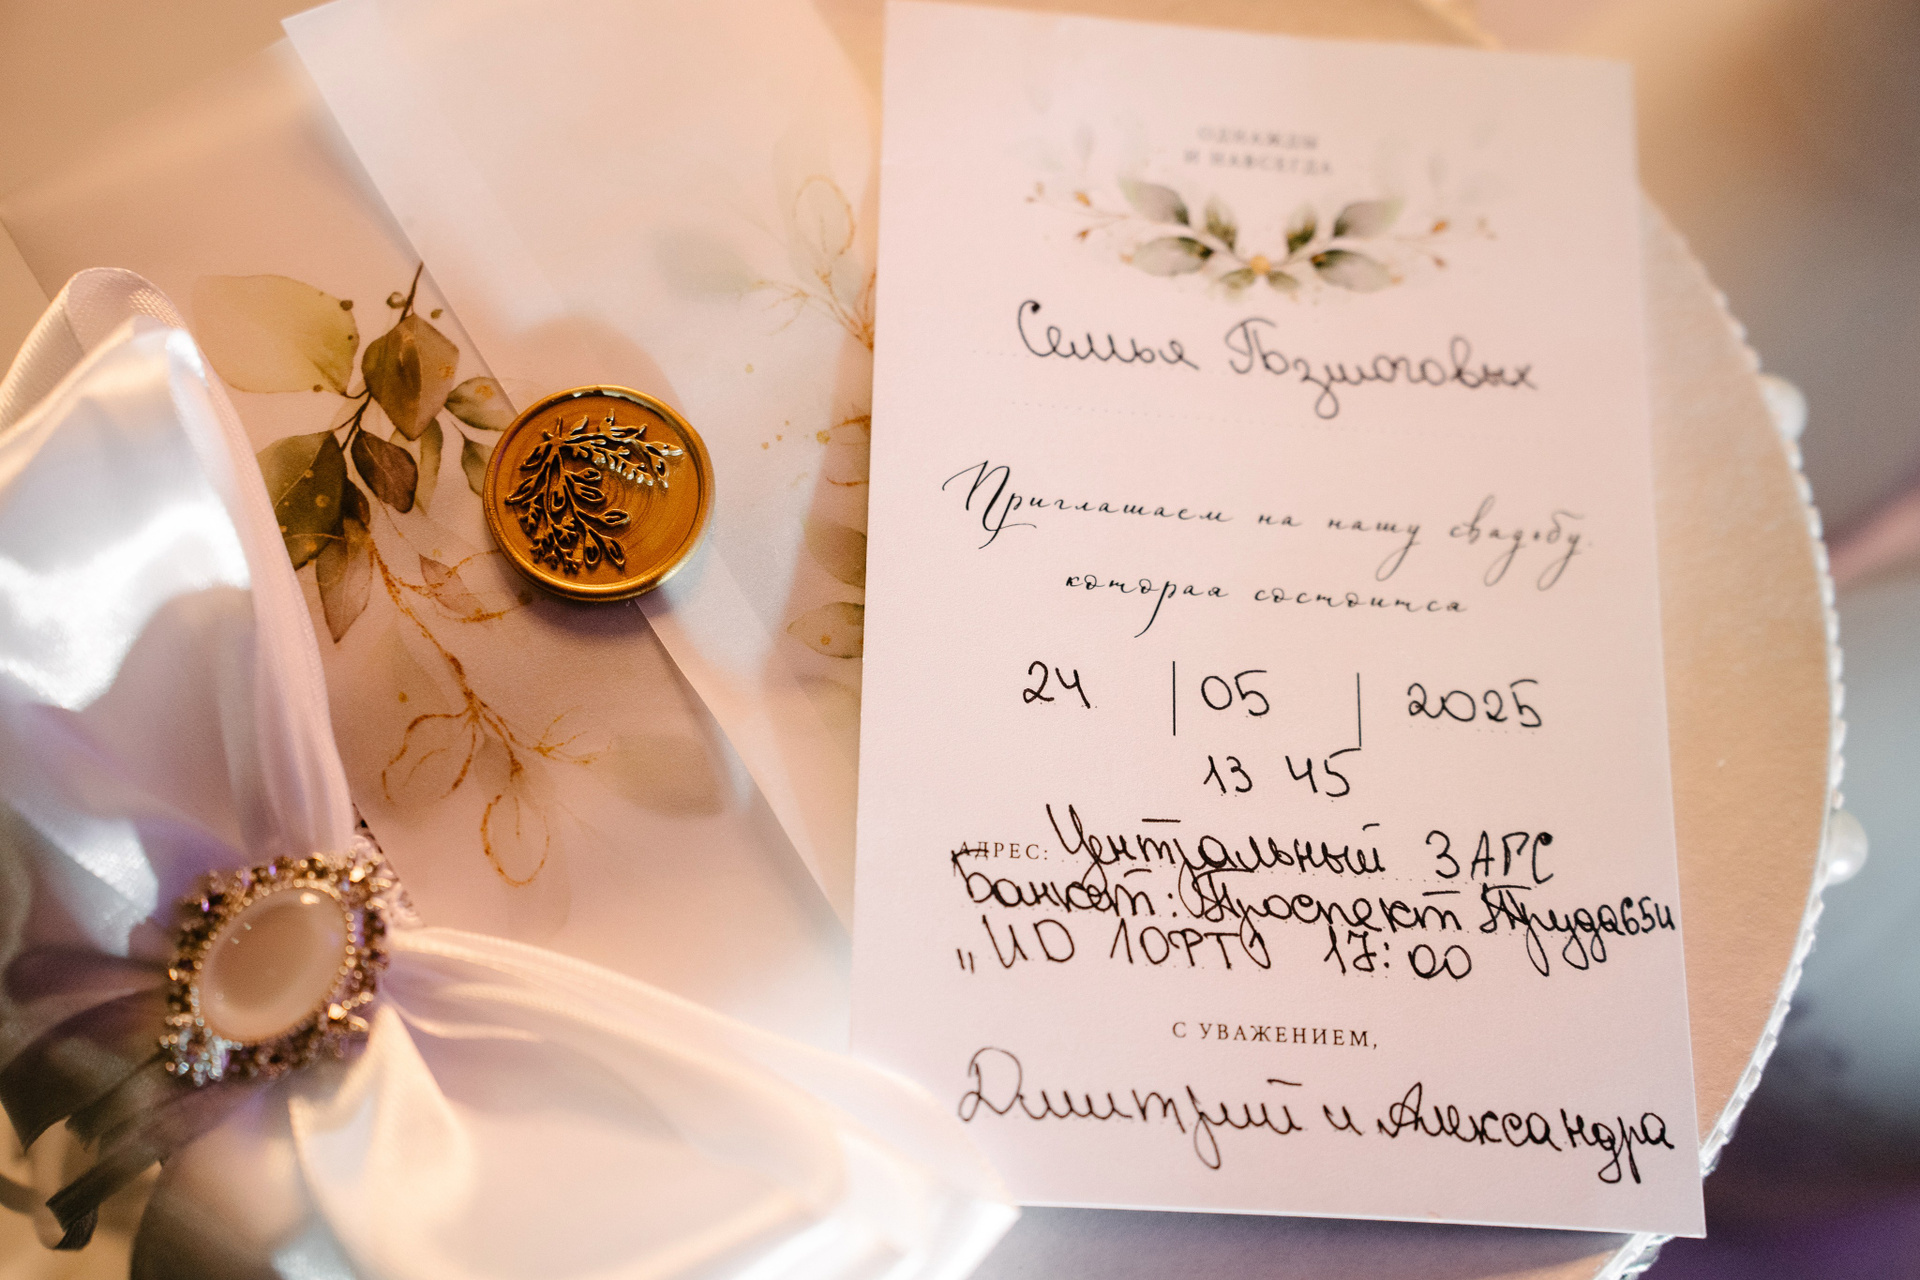 ОДНАЖДЫ
И НАВСЕГДА
Семья Позмоговых
Приглашаем на нашу свадьбу,
которая состоится
24 | 05 | 2025
13 45
АДРЕС: Центральный ЗАГС
Банкет: Проспект Труда 65и
17:00
С УВАЖЕНИЕМ,
Дмитрий и Александра